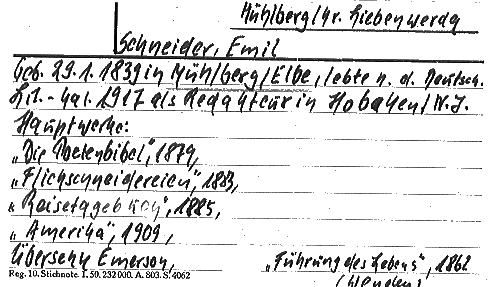 Mühlberg/Kr. Liebenwerda
Schneider, Emil
Geb. 29.1.1839 in Mühlberg/Elbe, lebte n. d. Deutsch.
Lit.-Kal. 1917 als Redakteur in Hoboken/N.J.
Hauptwerke:
„Die Poetenbibel", 1879,
„Flickschneidereien", 1883,
„Reisetagebuch", 1885,
„Amerika", 1909,
Übersetzte Emerson, „Führung des Lebens", 1862
Reg. 10. Stichnote. I. 50. 232000. A. 803. S. 4062